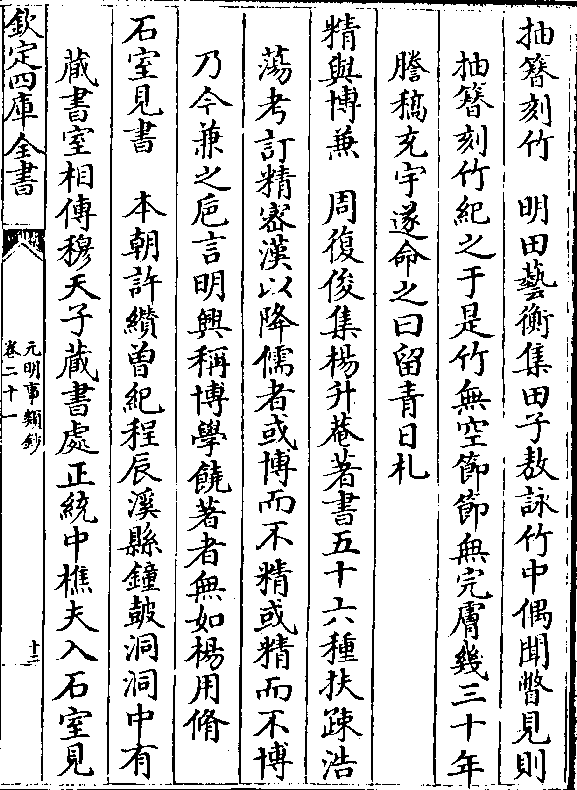 抽簪刻竹　明田藝衡集田子敖詠竹中偶聞瞥見則
抽簪刻竹紀之于是竹無空節節無完膚幾三十年
謄稿充宇遂命之曰留青日札
精與博兼　周復俊集楊升菴著書五十六種扶疎浩
蕩考訂精密漢以降儒者或博而不精或精而不博
乃今兼之巵言明興稱博學饒著者無如楊用脩
石室見書　本朝許纘曾紀程辰溪縣鐘鼓洞洞中有
蔵書室相傳穆天子蔵書處正統中樵夫入石室見
欽定四庫全書
元明事類鈔
卷二十一
十三